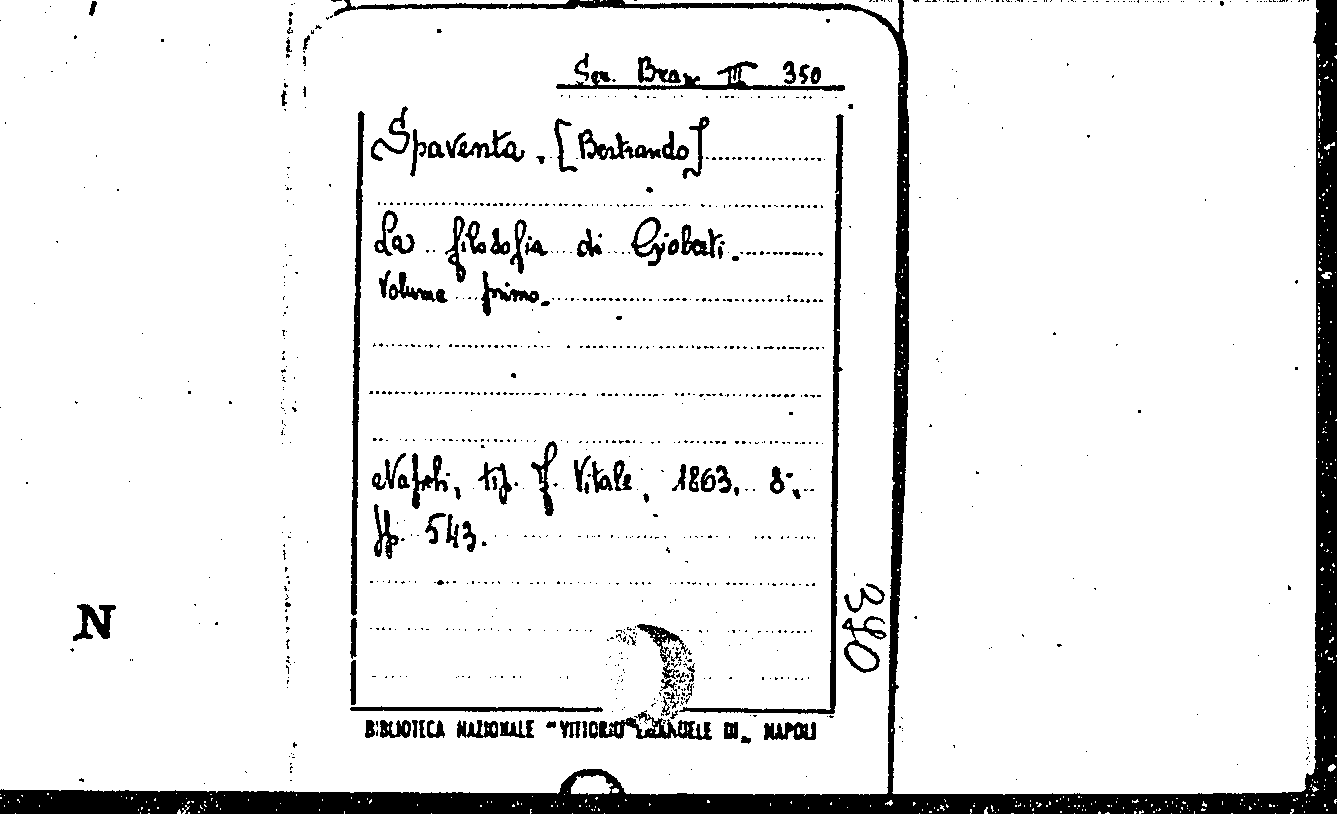 Ser. Bran III 350
Spaventa, [Bertrando]
La filosofia di Gioberti.
Volume primo.
Napoli, tip. F. Vitale, 1863, 8°,
pp. 543.
390
N
BIBLIOTECA NAZIONALE "VITTORIO EMANUELE III„ NAPOLI